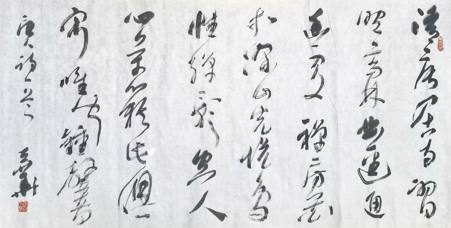 清晨入古寺初日
照高林曲徑通
幽處禪房花
木深山光悦鳥
性潭影空人
心萬籟此俱
寂惟聞鐘磬音
唐詩一首